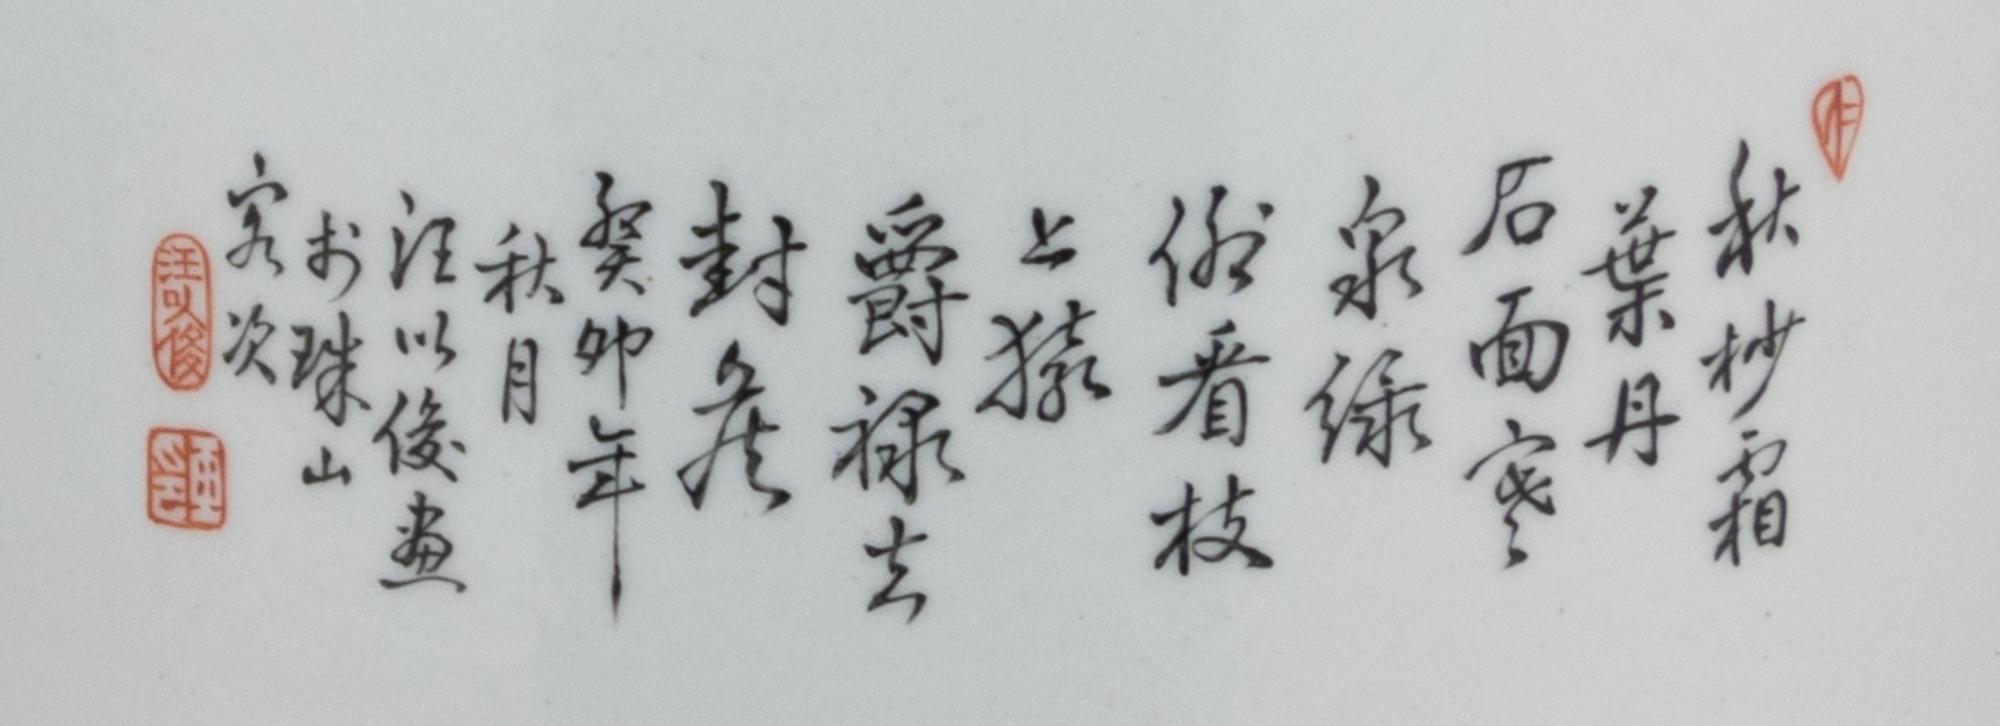 秋杪霜
葉丹
石面寒
泉綠
俯看枝
上猿
爵禄去
封侯
癸卯年
秋月
汪以俊画
於珠山
客次
汪以俊